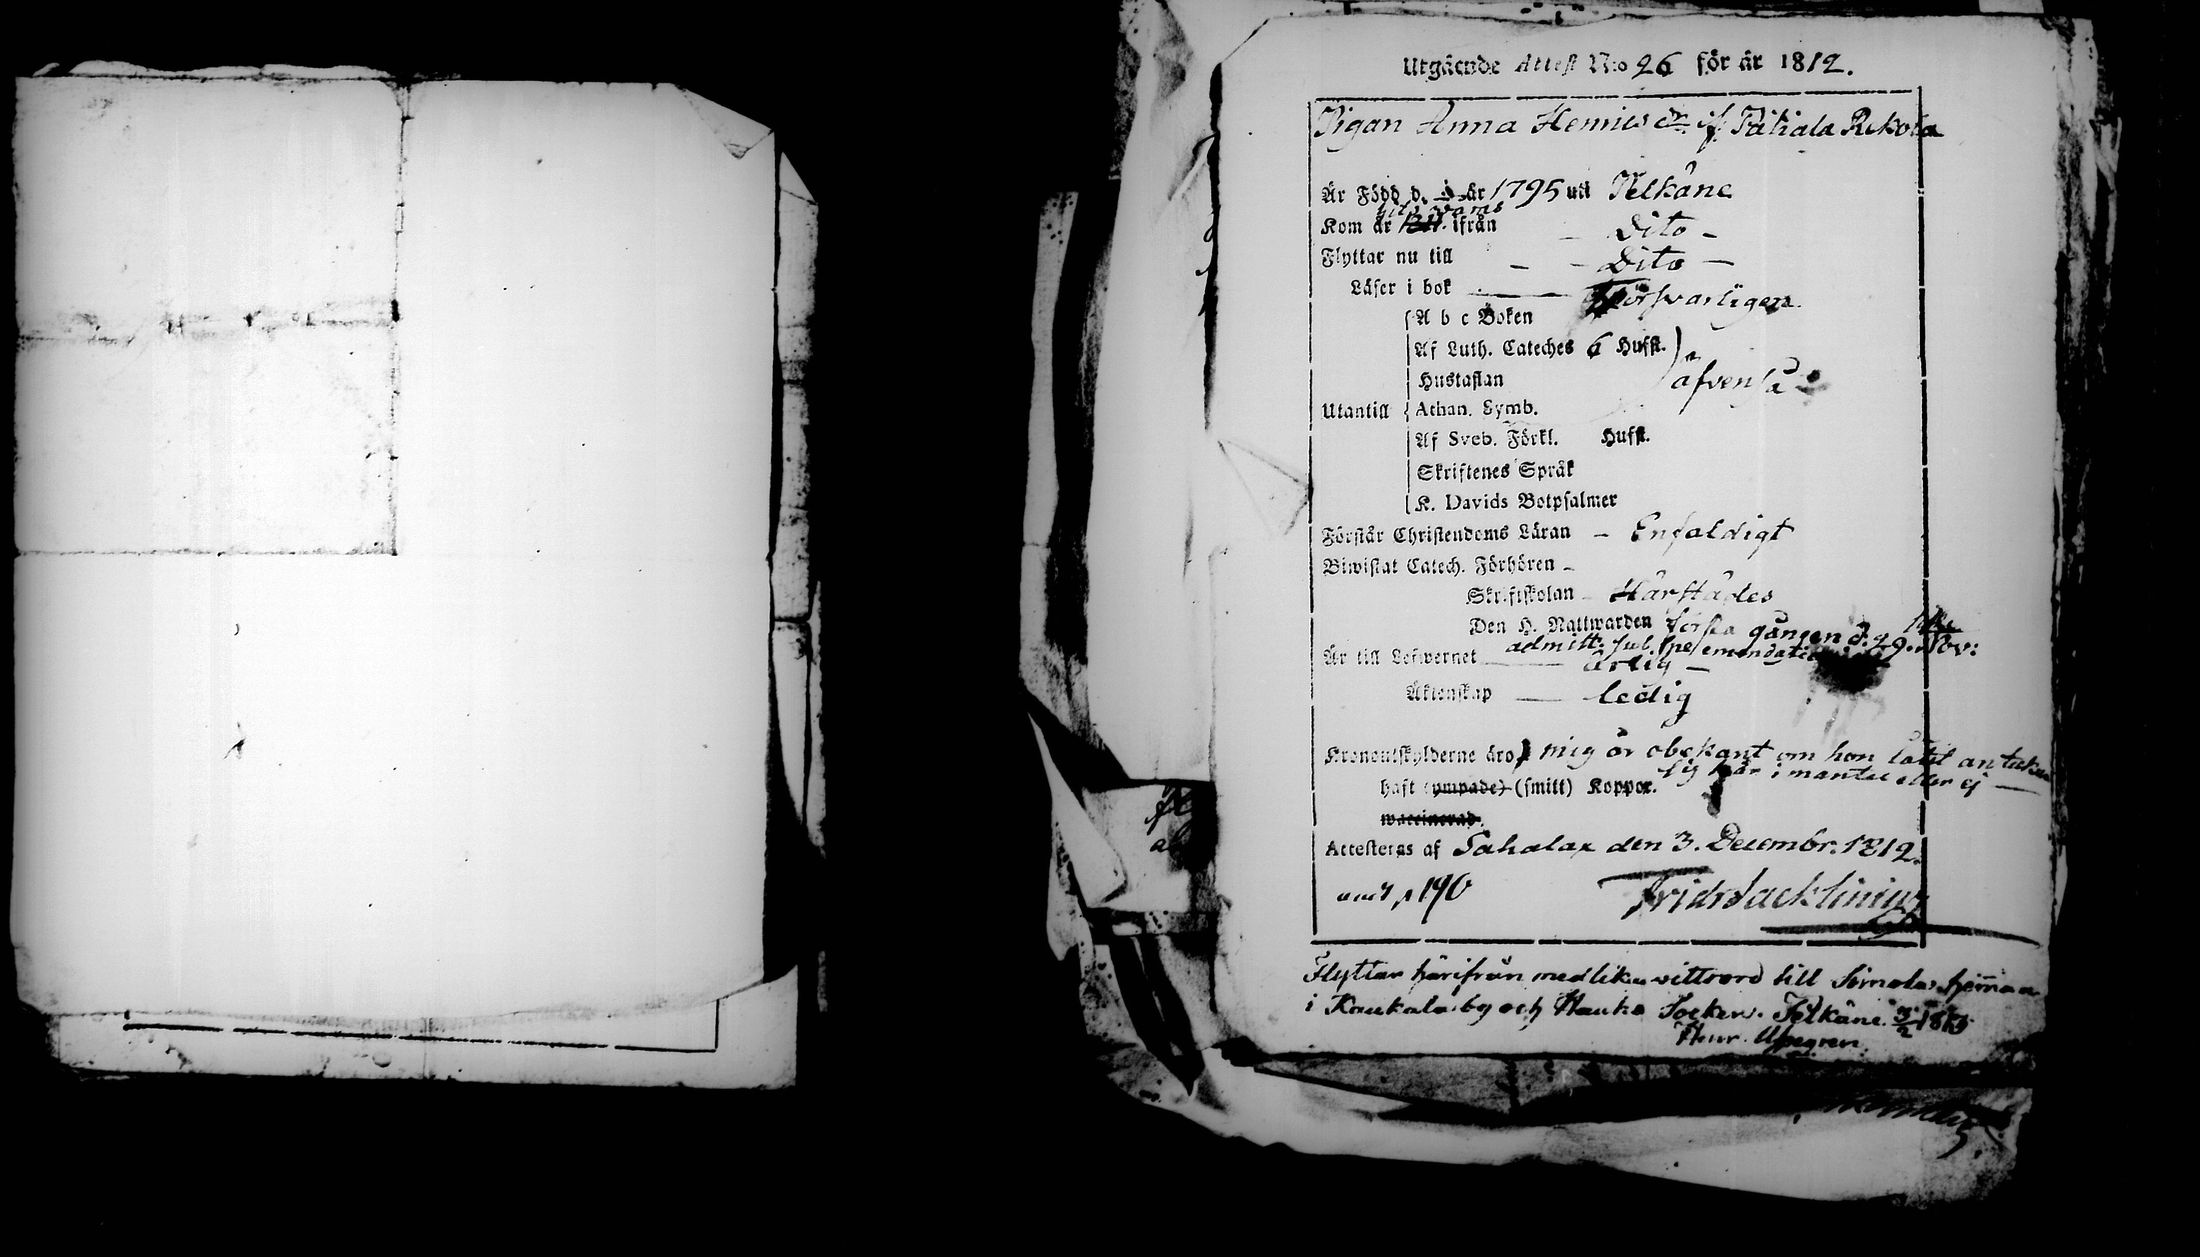 Utgående Attest N:o 26 för år 1812.
Pigan Anna Henricsdr. if. Pätiala Rekola
Är Född d. år 1795 uti Pelkäne
Kom år ifrån - Dito -
Flyttar nu till - - Dito -
Läser i bok Försvarligen
A b c Boken
Af Luth. Cateches 6 Hufst.
Hustaflan äfvenså
Utantill Athan. Symb.
Af Sveb. Förkl. Hufst.
Skriftenes Språk
K. Davids Botpsalmer
Förstår Christendoms Läran - Enfaldigt
Biwistat Catech. Förhören -
Skriftskolan - Härstädes
Den H. Nattwarden första gången d. 29. Nov:
admitt. sub spe emendationis
Är till Lefwernet ärlig -
Äktenskap ledig
Kronoutskylderne äro mig är obekant om hon låtit anteckna
sig här i mantal eller ej
haft (ympade) (smitt) Koppor.
waccinerad.
Attesteras af Sahalax den 3. Decembr. 1812.
Fridr Jacklinius
Flyttar härifrån med lika vittsord till Simola hemman
i Kaukala by och Hauho Socken. Pelkäne
Henr. Uppgren